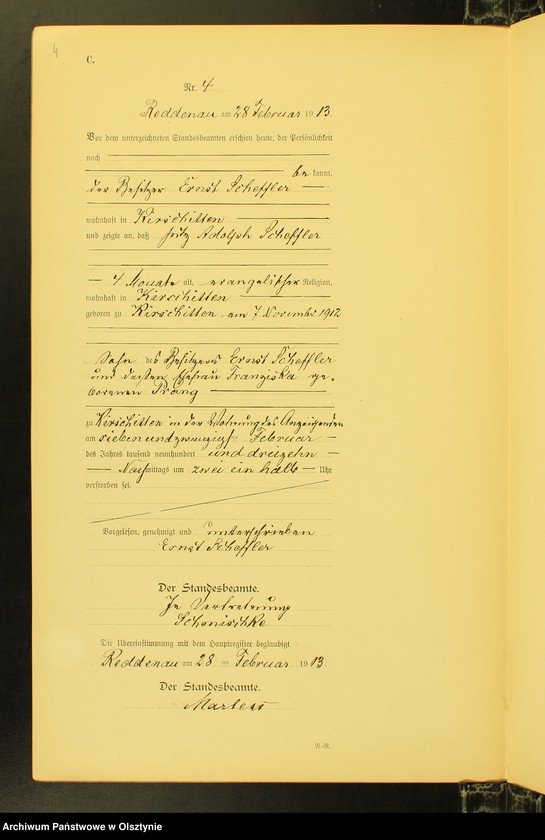 4
C.
Nr. 4
Reddenau am 28 Februar 1913.
Vor dem unterzeichneten Standesbeamten erschien heute, der Persönlichkeit
nach
be kannt,
der Besitzer Ernst Scheffler
wohnhaft in Kirschitten
und zeigte an, daß Fritz Adolph Scheffler
4 Monate alt, evangelischer Religion,
wohnhaft in Kirschitten
geboren zu Kirschitten, am 7 November 1912
Sohn des Besitzers Ernst Scheffler
und dessen Ehefrau Franziska ge-
borenen Prang
zu Kirschitten in der Wohnung des Anzeigenden
am siebenundzwanzigsten Februar
des Jahres tausend neunhundert und dreizehn
Nachmittags um zwei ein halb Uhr
verstorben sei.
Vorgelesen, genehmigt und unterschrieben
Ernst Scheffler
Der Standesbeamte.
In Vertretung
Schonischke
Die Übereinstimmung mit dem Hauptregister beglaubigt
Reddenau am 28 ten Februar 1913.
Der Standesbeamte.
Martens
N.-R.
Archiwum Państwowe w Olsztynie